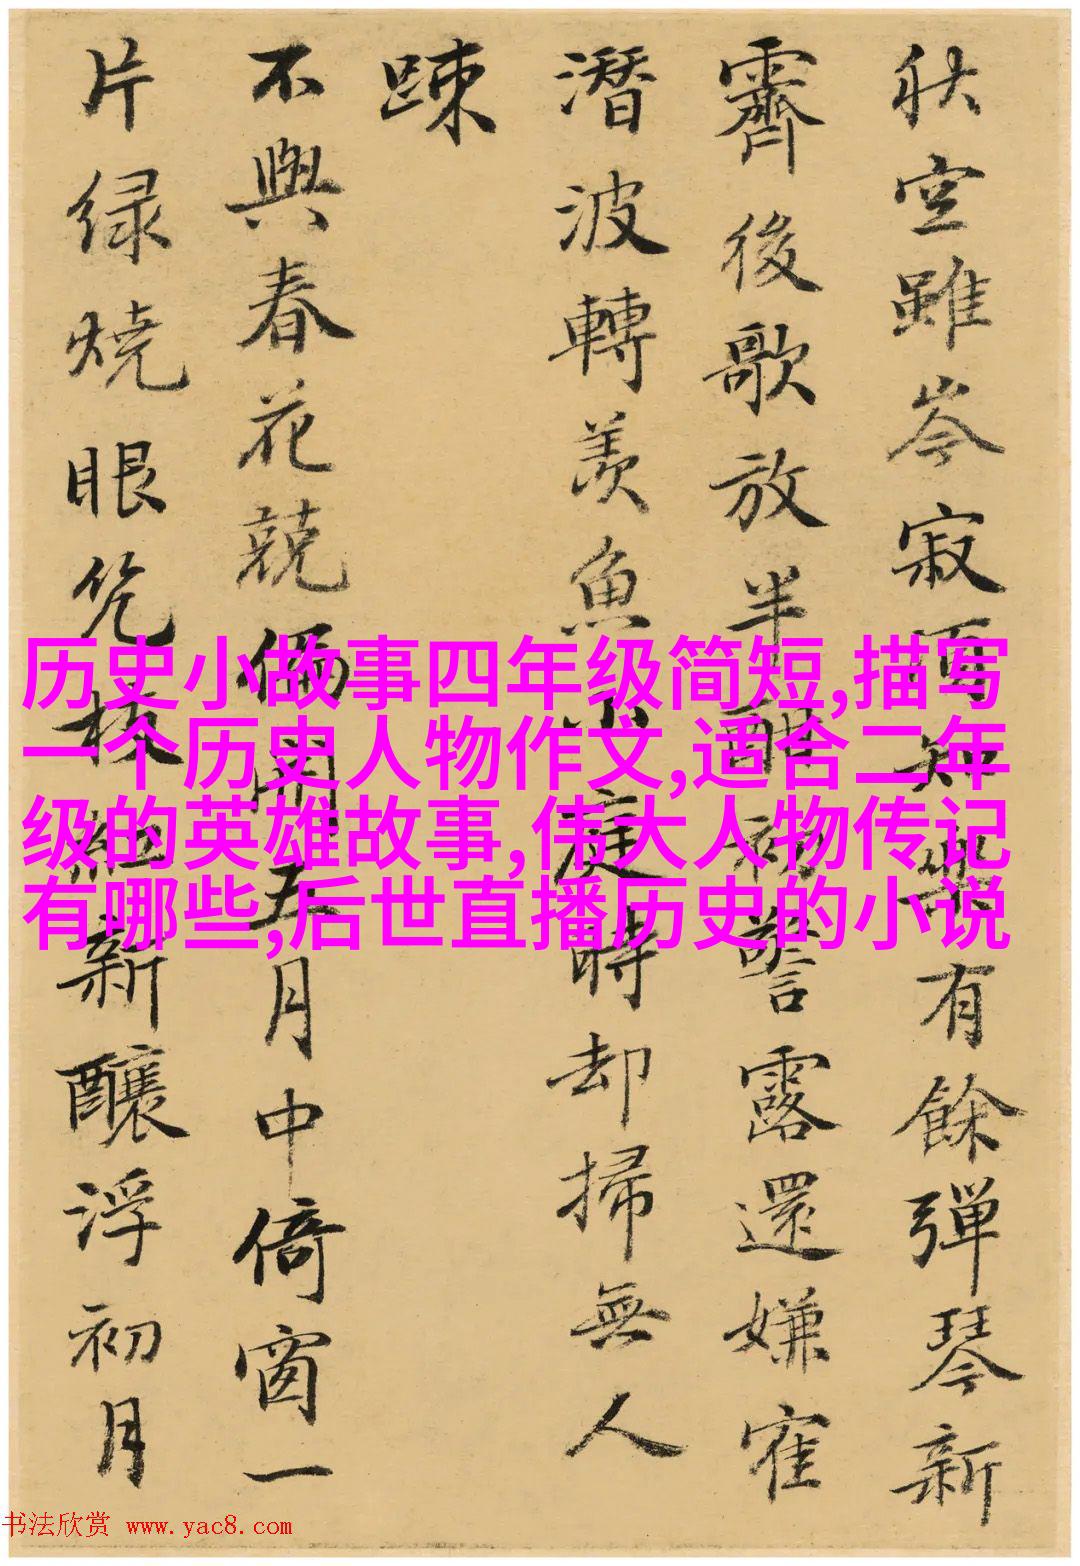 秋空雖岑寂而知樂有餘彈琴新
霽後歌放半酣初警露還嫌寉
潛波轉羨魚小庭時却掃無人
踈
不與春花競偏開五月中倚窗一
片緑燒眼枝紅新釀浮初月
历史小故事四年级简短,描写
一个历史人物作文,适合二年
级的英雄故事,伟大人物传记
有哪些,后世直播历史的小说
书法欣赏 www.yac8.com